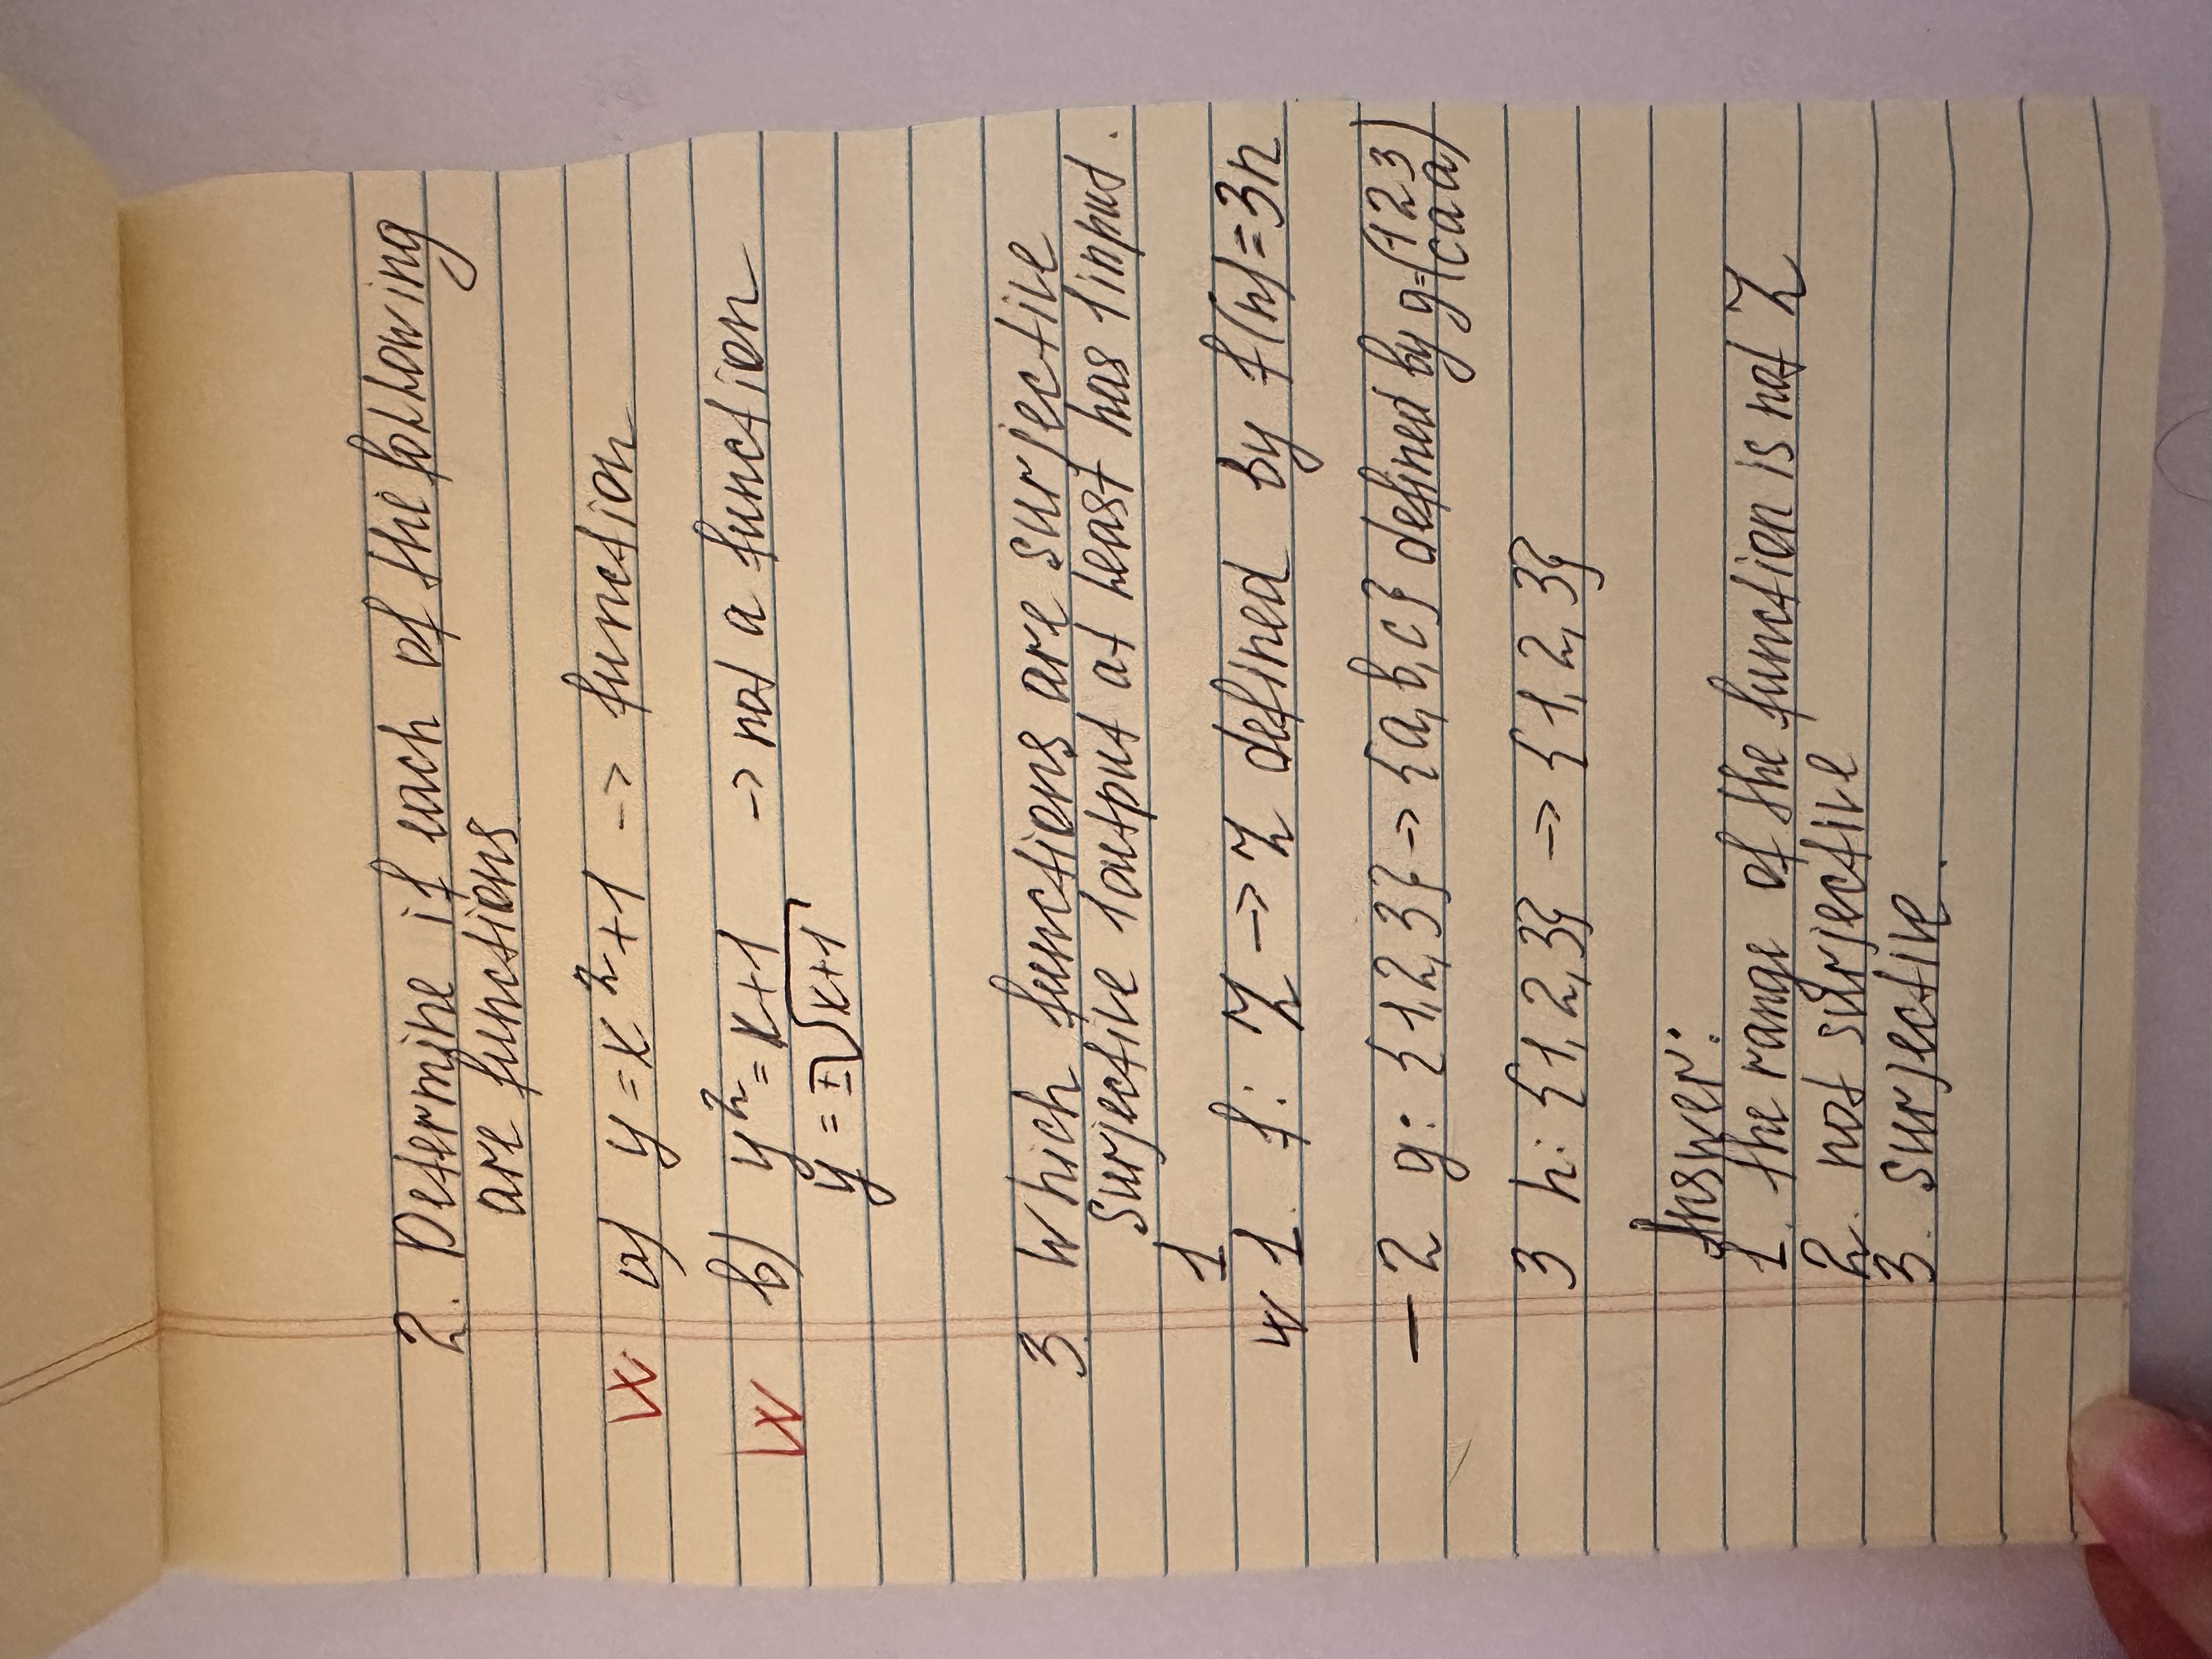 2. Determine if each of the following
are functions.
W a) y = x² + 1 -> function
W b) y² = x+1 -> not a function
y = ±√x+1
3. Which functions are surjective
surjective 1 output at least has 1 input.
1
W 1. f: Z -> Z defined by f(n) = 3n
- 2 g: {1,2,3} -> {a,b,c} defined by g=(1 2 3
c a a)
3 h: {1,2,3} -> {1,2,3}
Answer:
1. the range of the function is not Z
2. not surjective
3. surjective.